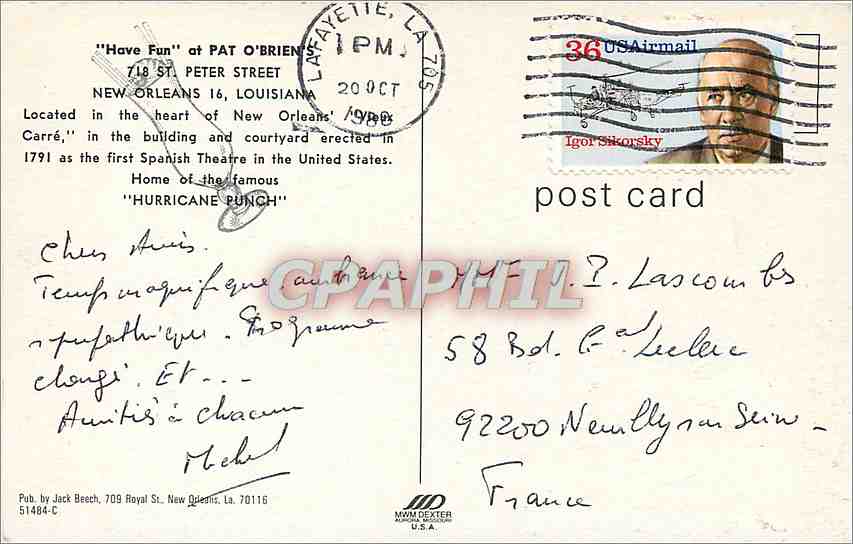 "Have Fun" at PAT O'BRIEN'S
718 ST. PETER STREET
NEW ORLEANS 16, LOUISIANA
Located in the heart of New Orleans' "Vieux
Carré," in the building and courtyard erected in
1791 as the first Spanish Theatre in the United States.
Home of the famous
"HURRICANE PUNCH"
LAFAYETTE, LA 705
1 PM
20 OCT
1988
36 USAirmail
Igor Sikorsky
post card
Chers Amis.
Temps magnifique. ambiance
sympathique. Programme
changé. Et ...
Amitiés à chacun
Michel
J.P. Lascombes
58 Bd. Gal Leclerc
92200 Neuilly sur Seine
France
CPAPHIL
Pub. by Jack Beech, 709 Royal St., New Orleans, La. 70116
51484-C
MWM DEXTER
AURORA, MISSOURI
U.S.A.